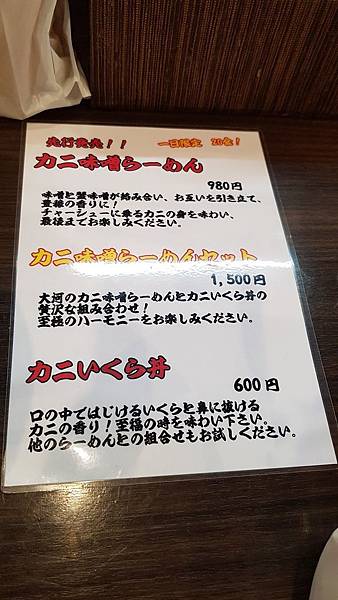 先行発売！！ 一日限定 20食！
カニ味噌らーめん
980円
味噌と蟹味噌が絡み合い、お互いを引き立て、
豊穣の香りに！
チャーシューに乗るカニの身を味わい、
最後までお楽しみください。
カニ味噌らーめんセット
1,500円
大河のカニ味噌らーめんとカニいくら丼の
贅沢な組み合わせ！
至極のハーモニーをお楽しみください。
カニいくら丼
600円
口の中ではじけるいくらと鼻に抜ける
カニの香り！至極の時を味わい下さい。
他のらーめんとの組合せもお試しください。